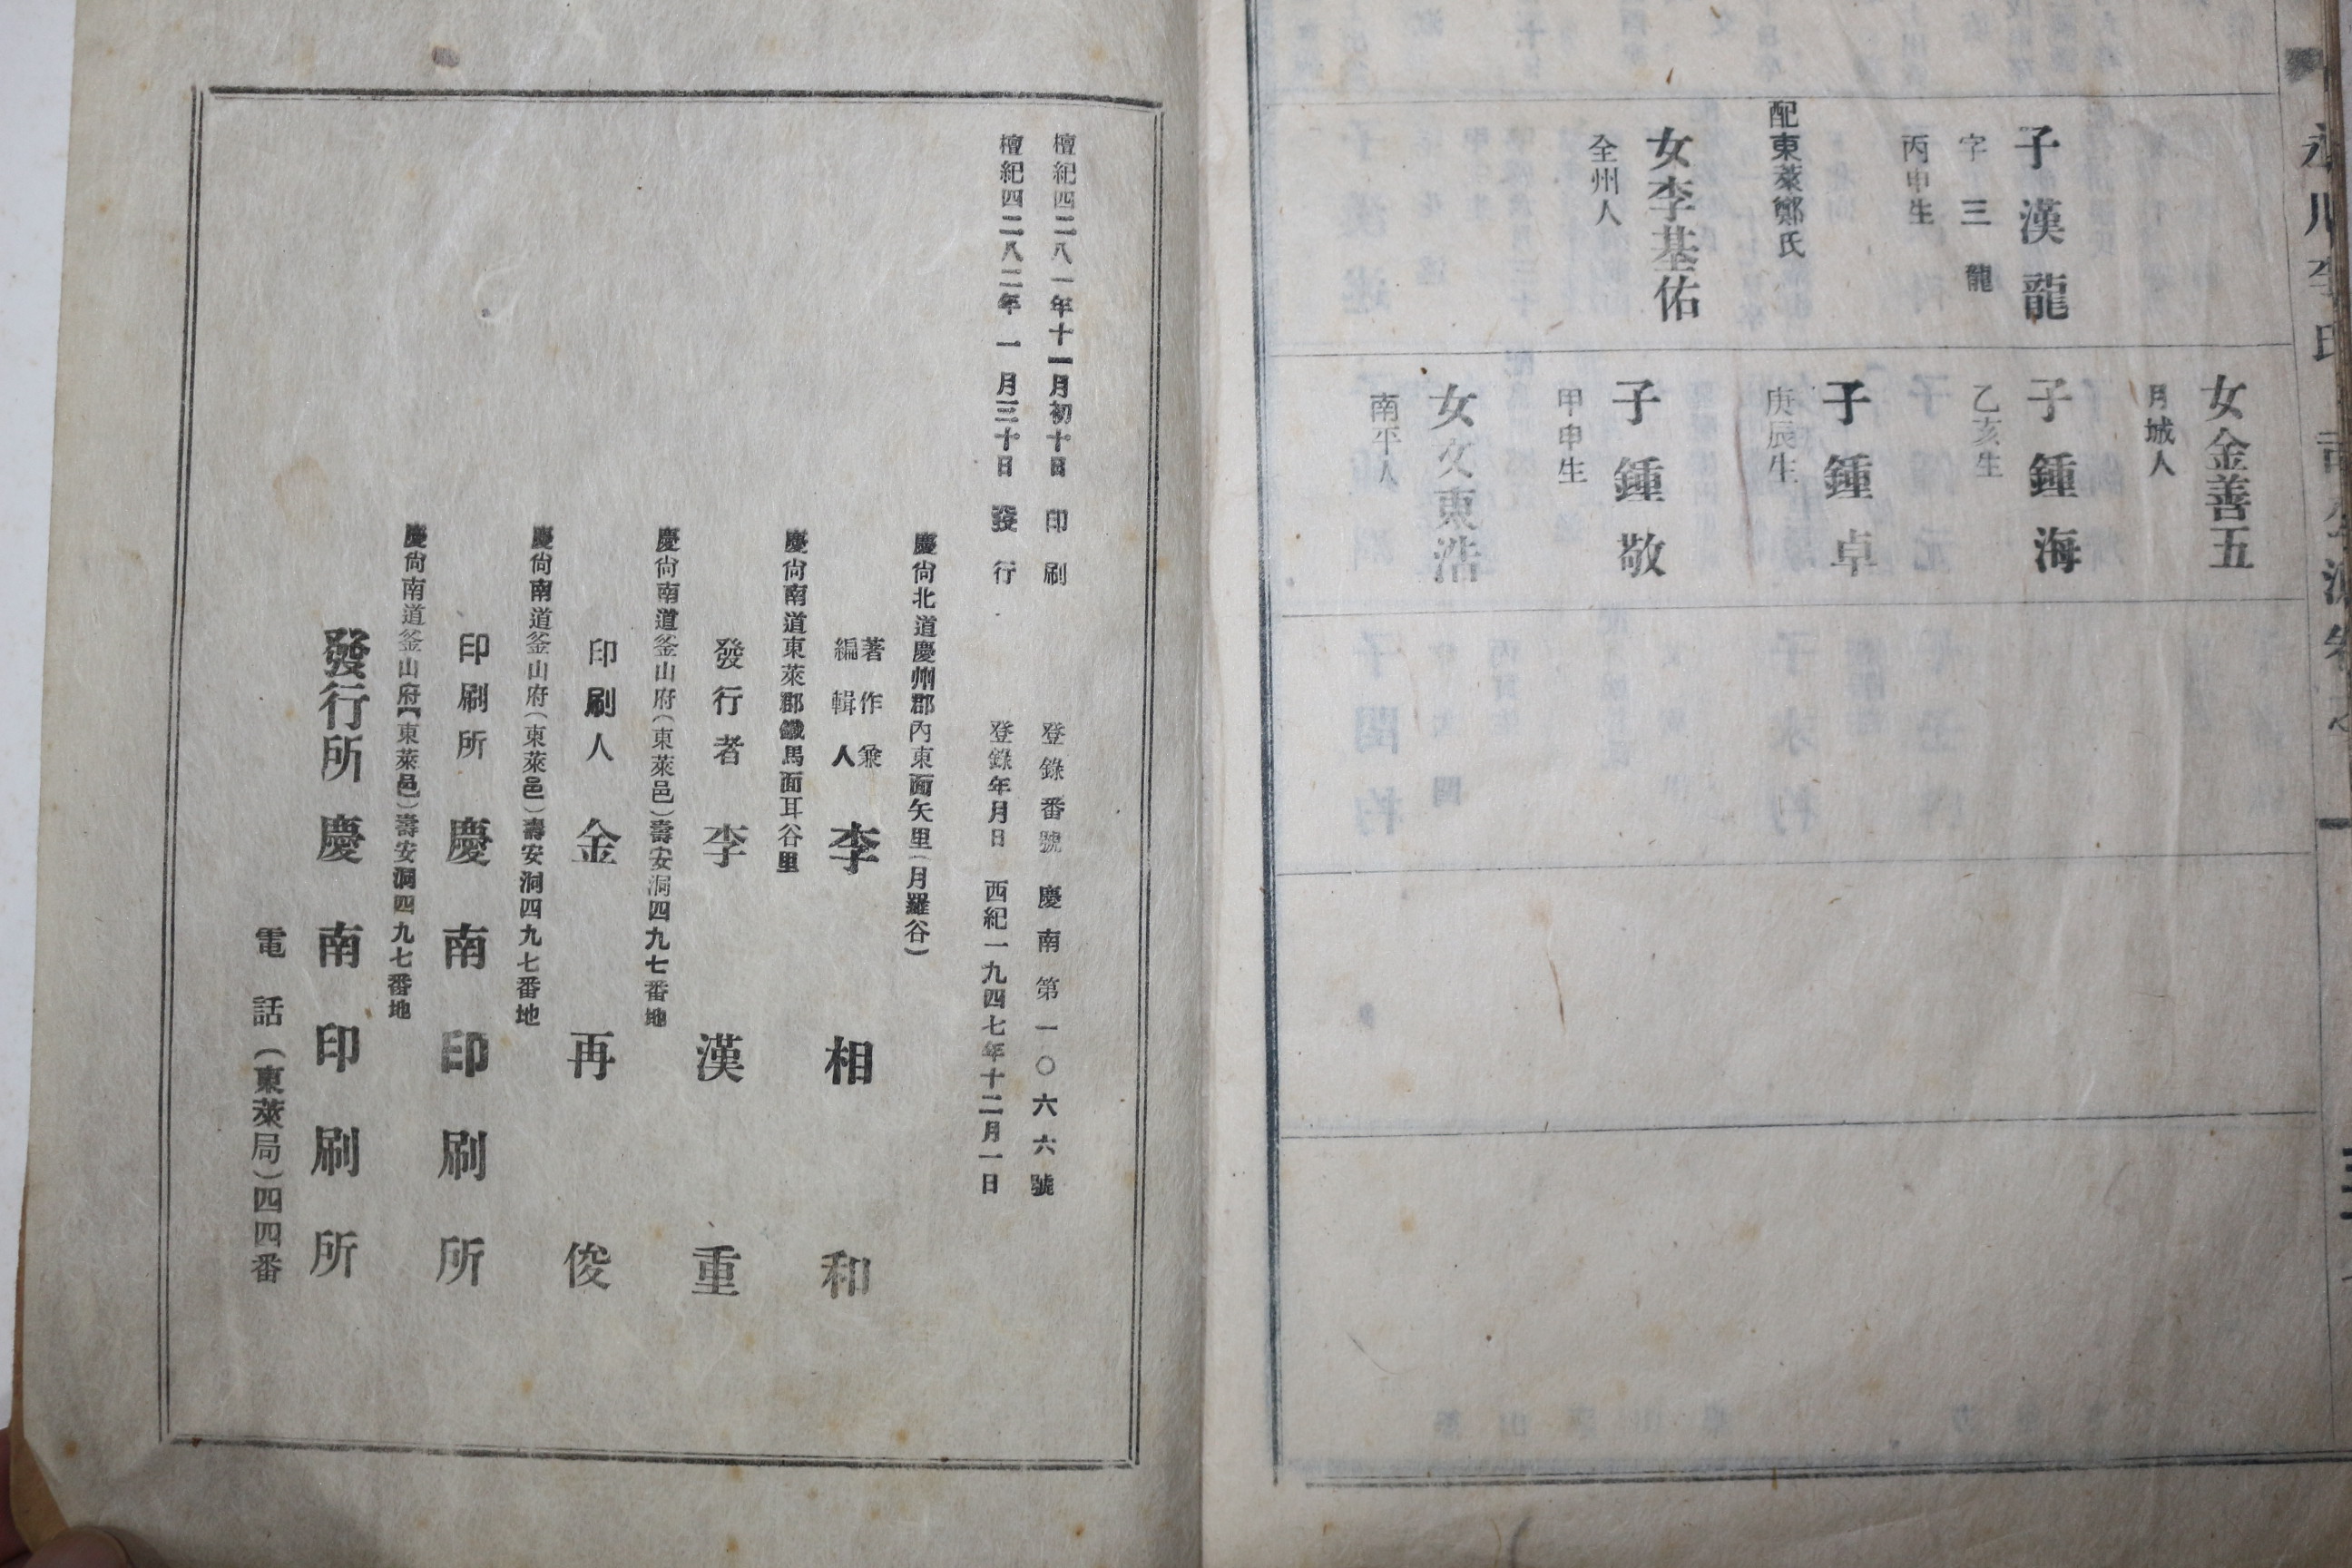 女金善五
月城人
子漢龍
字三龍
丙申生
配東萊鄭氏
子鍾海
乙亥生
子鍾卓
庚辰生
子鍾敬
甲申生
女李基佑
全州人
女文東浩
南平人
檀紀四二八一年十一月初十日 印刷
檀紀四二八二年一月三十日 發行
登錄番號 慶南第一〇六六號
登錄年月日 西紀一九四七年十二月一日
慶尙北道慶州郡內東面矢里(月羅谷)
著作兼
編輯人 李相和
慶尙南道東萊郡鐵馬面耳谷里
發行者 李漢重
慶尙南道釜山府(東萊邑)壽安洞四九七番地
印刷人 金再俊
慶尙南道釜山府(東萊邑)壽安洞四九七番地
印刷所 慶南印刷所
慶尙南道釜山府【東萊邑)壽安洞四九七番地
發行所 慶南印刷所
電話(東萊局)四四番